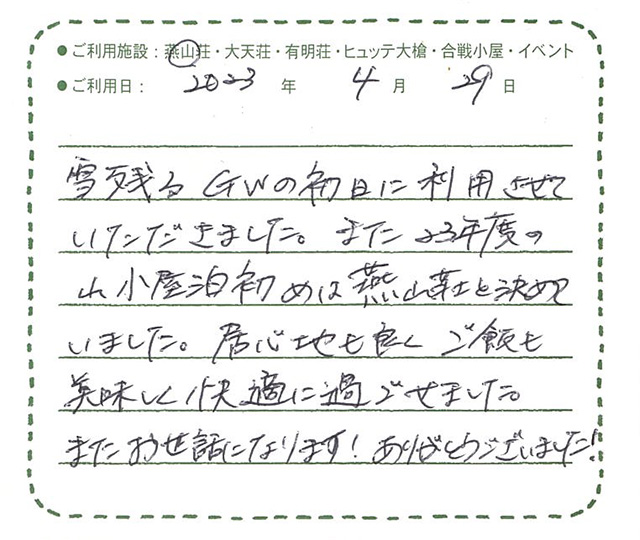 ● ご利用施設：燕山荘・大天荘・有明荘・ヒュッテ大槍・合戦小屋・イベント
● ご利用日： 2023 年 4 月 29 日
雪残る GWの初日に利用させて
いただきました。また23年度の
山小屋泊初めは燕山荘と決めて
いました。居心地も良く ご飯も
美味しく快適に過ごせました。
またお世話になります！ありがとうございました！